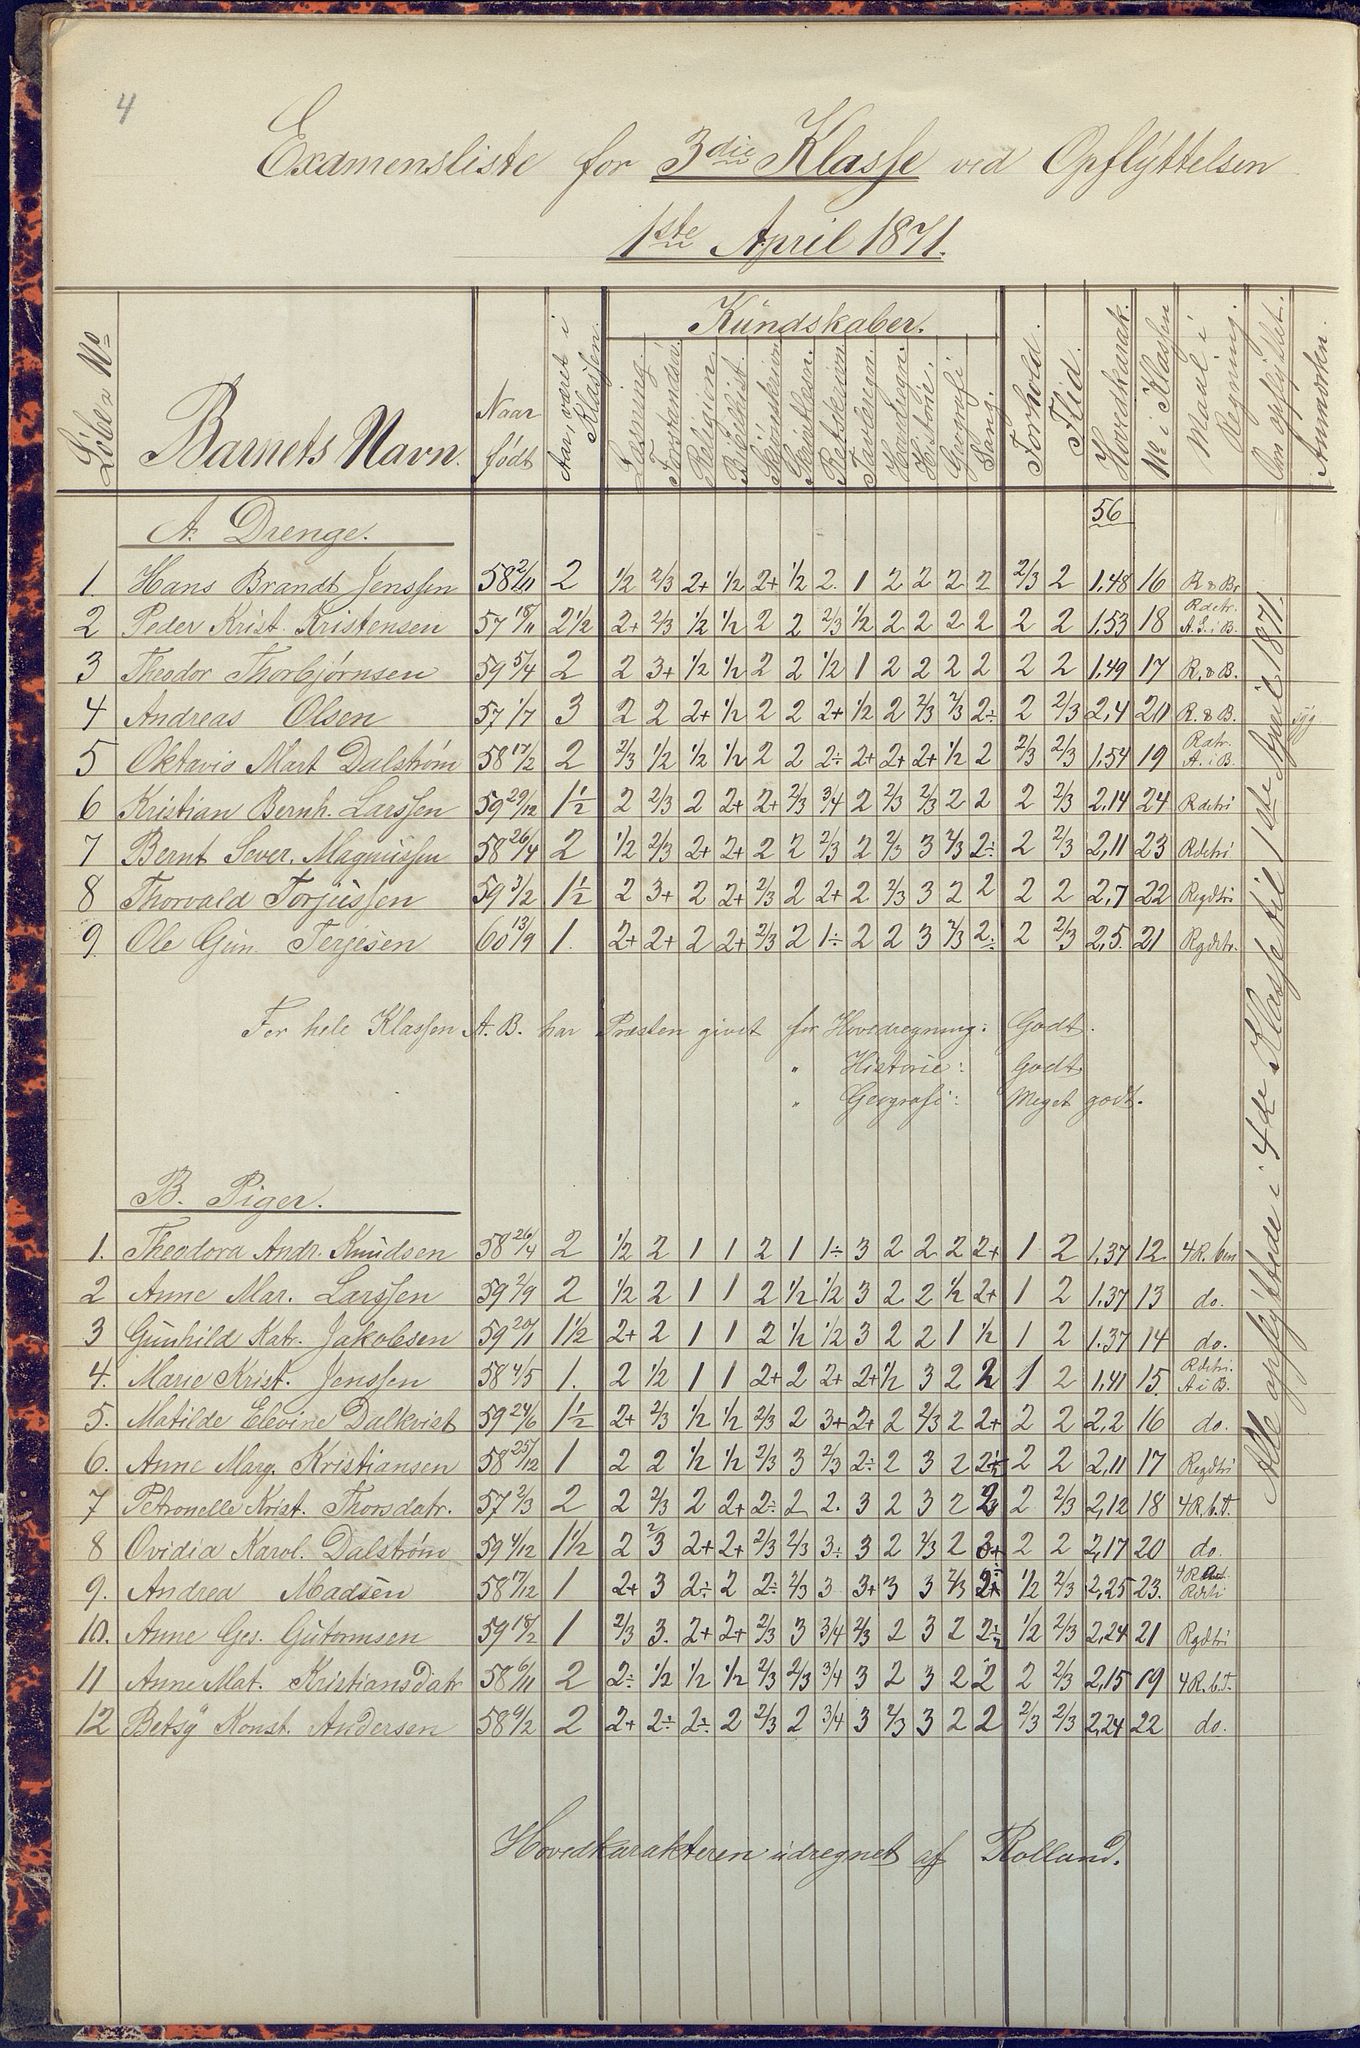 4
Examensliste for 3die Klasse ved Opflyttelsen
1ste April 1871.
Løbe No | Barnets Navn. | Naar født | Aar, været i Klassen. | Kundskaber. | Læsning. | Forstandsøv. | Religion | Bibelhist. | Skjønskrivn. | Retskrivn. | Tavleregn. | Hovedregn. | Historie. | Geografi | Sang. | Forhold. | Flid. | Hovedkarak. | No i Klassen | Maal i Regning. | Om opflyttet. | Anmærkn.
A. Drenge. 56
1. Hans Brandt Jenssen 58 2/11 2 1/2 2/3 2+ 1/2 2+ 1/2 2. 1 2 2 2 2 2/3 2 1,48 16 R. & Br
2 Peder Krist. Kristensen 57 18/11 2 1/2 2+ 2/3 1/2 1/2 2 2 2/3 1/2 2 2 2 2 2 2 1,53 18 Rdetr. A. S. i B.
3 Theodor Thorbjørnsen 59 5/4 2 2 3+ 1/2 1/2 2 2 1/2 1 2 2 2 2 2 2 1,49 17 R. & B.
4 Andreas Olsen 57 1/7 3 2 2 2+ 1/2 2 2 2+ 1/2 2 2/3 2/3 2÷ 2 2/3 2,4 20 R. & B. syg
5 Oktavis Mart Dalstrøm 58 17/12 2 2/3 1/2 1/2 1/2 2 2 2÷ 2+ 2+ 2+ 1/2 2 2/3 2/3 1,54 19 Rdtr. A. i B.
6 Kristian Bernh. Larssen 59 29/12 1 1/2 2 2/3 2 2+ 2+ 2/3 3/4 2 2/3 2/3 2 2 2 2/3 2,14 24 Rdetri
7 Bernt Sever. Magnussen 58 26/4 2 1/2 2/3 2+ 2+ 2 2 2/3 2 2/3 3 2/3 2÷ 2 2/3 2,11 23 Rdetri
8 Thorvald Torjussen 59 3/2 1 1/2 2 3+ 2 2+ 2/3 2 2+ 2 2/3 3 2 2 2 2 2,7 22 Regdtri
9. Ole Gun. Terjesen 60 13/9 1. 2+ 2+ 2 2+ 2/3 2 1÷ 2 2 3 2/3 2÷ 2 2/3 2,5. 21 Rgdetr.
For hele Klassen A. B. har Præsten givet for Hovedregning: Godt.
" Historie: Godt
" Geografi: Meget godt.
B. Piger.
1. Theodora Andr. Knudsen 58 26/4 2 1/2 2 1 1 2 1 1÷ 3 2 2 2 2+ 1 2 1,37 12
2 Anne Mar. Larssen 59 2/9 2 1/2 2 1 1 2 1/2 1/2 3 2 2 1/2 2+ 1 2 1,37 13 do.
3 Gunhild Katr. Jakobsen 59 20/11 1 1/2 2+ 2 1 1 2 1/2 1/2 3 2 2 1 1/2 1 2 1,37 14 do.
4. Marie Krist. Jenssen 58 4/5 1. 2 1/2 1 1 2+ 2 2+ 2+ 1/2 3 2 2 1 2 1,41 15. Rdetri. A i B.
5. Matilde Elevine Dalkvist 59 24/6 1 1/2 2+ 2/3 1/2 1/2 2/3 2 3+ 2+ 2 2/3 2 2+ 2 2 2,2 16 do.
6. Anne Marg. Kristiansen 58 25/12 1 2 2 1/2 1/2 2/3 3 2/3 2÷ 2 3 2 2 2 2,11 17 Regdtri
7 Petronelle Krist. Thorsdatr. 57 2/3 2 2 2/3 2 2+ 2÷ 2 2. 3 2 3 2 2 2/3 2,12 18 4 R. b. T.
8 Ovidia Karol. Dalstrøm 59 4/12 1 1/2 2 2/3 2+ 2+ 2/3 2/3 3÷ 3 2 2/3 2 3+ 2 2 2,17 20 do.
9. Andrea Madsen 58 17/12 1 2+ 3 2÷ 2 2÷ 2/3 3 3+ 3 3 2/3 1/2 2/3 2,25 23. Rdetri
10. Anne Ges. Gutormsen 59 18/2 1 2/3 3. 2+ 2+ 2/3 3 3/4 2/3 2 3 2 1/2 2/3 2,24 21 Rgdtri
11 Anne Mat. Kristiansdatr 58 6/11 2 2÷ 1/2 1/2 1/2 2/3 2/3 3/4 3 2 3 2 2 2 2/3 2,15 19 4 R. b. T.
12 Betsy Konst. Andersen 58 9/2 2 2+ 2÷ 2÷ 2 2/3 2 3/4 3 2/3 3 2 2 2/3 2/3 2,24 22 do.
Alle opflyttede i 4de Klasse til 1ste April 1871.
Hovedkarakteren udregnet af Rolland.